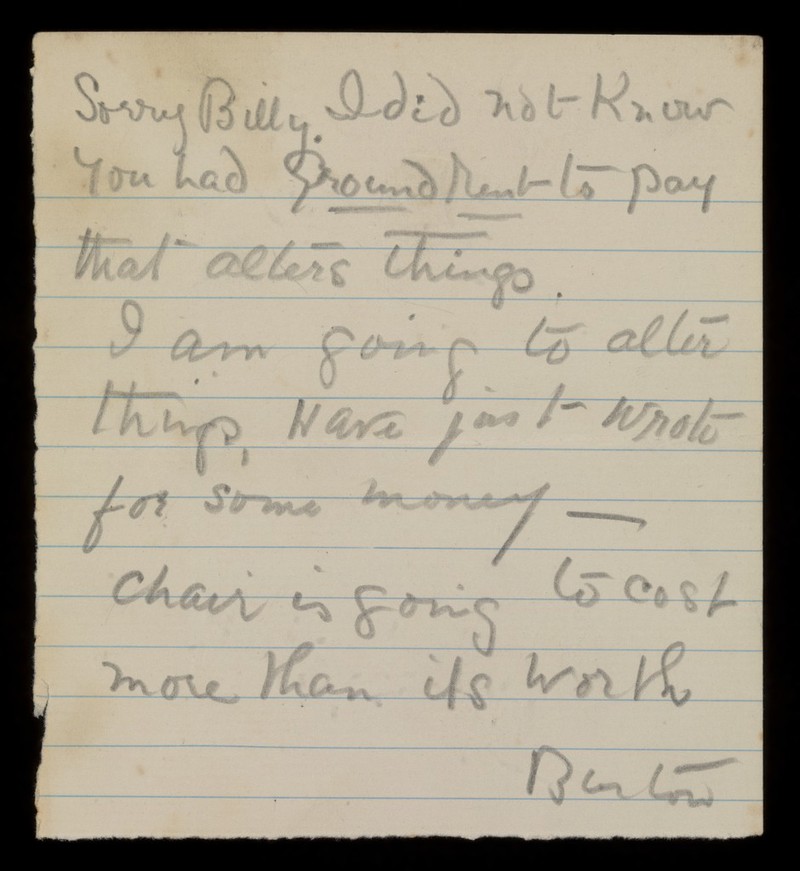 Sorry Billy. I did not Know
You had Ground Rent to pay
that alters things.
I am going to alter
things, Have just wrote
for some money —
Chair is going to cost
more than its Worth
Burton